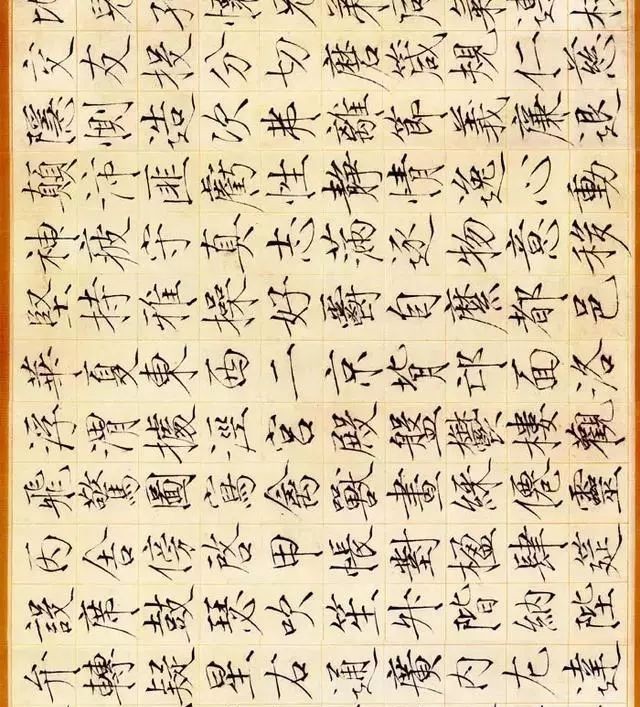 交友投分切磨箴規仁慈
隱惻造次弗離節義廉退
顛沛匪虧性靜情逸心動
神疲守真志滿逐物意移
堅持雅操好爵自縻都邑
華夏東西二京背邙面洛
浮渭據涇宮殿盤鬱樓觀
飛驚圖寫禽獸畫綵僊靈
丙舍傍啟甲帳對楹肆筵
設席鼓瑟吹笙升階納陛
弁轉疑星右通廣內左達